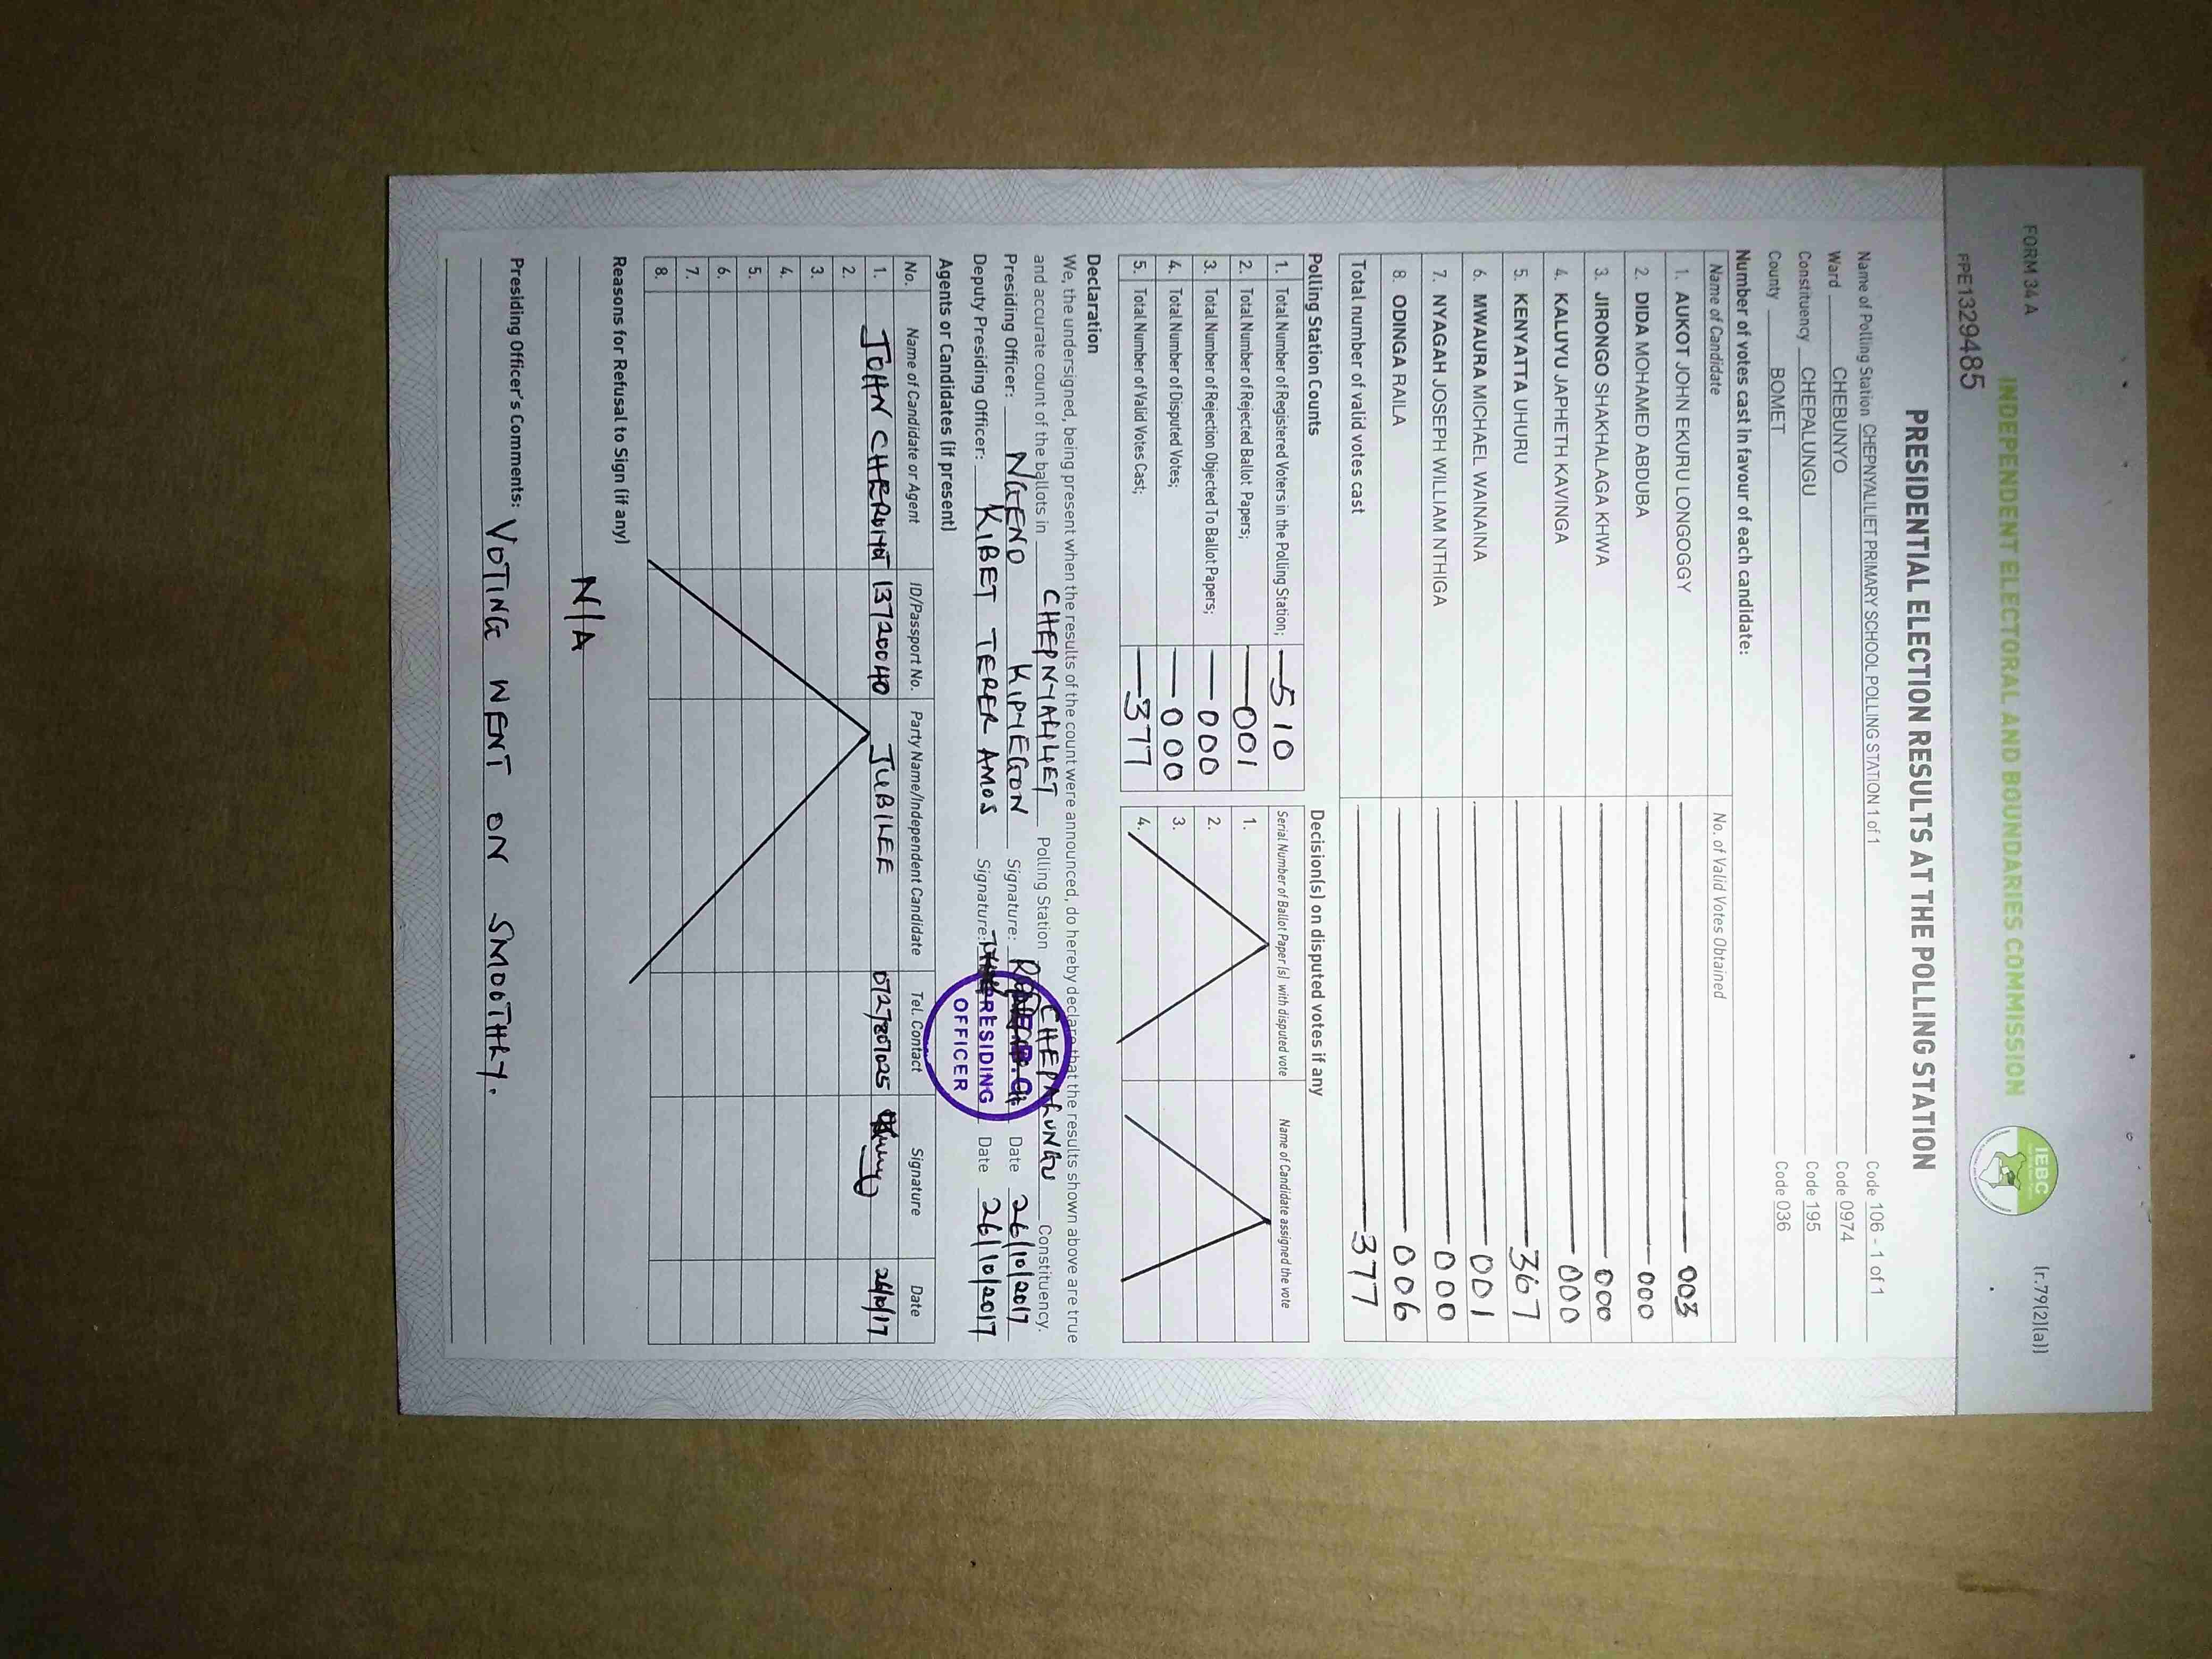 FORM 34 A
(r.79(2)(a))
INDEPENDENT ELECTORAL AND BOUNDARIES COMMISSION
IEBC
PPE1329485
PRESIDENTIAL ELECTION RESULTS AT THE POLLING STATION
Name of Polling Station CHEPNYALILIET PRIMARY SCHOOL POLLING STATION 1 of 1 Code 106 - 1 of 1
Ward CHEBUNYO Code 0974
Constituency CHEPALUNGU Code 195
County BOMET Code 036
Number of votes cast in favour of each candidate:
Name of Candidate No. of Valid Votes Obtained
1. AUKOT JOHN EKURU LONGOGGY 003
2. DIDA MOHAMED ABDUBA 000
3. JIRONGO SHAKHALAGA KHWA 000
4. KALUYU JAPHETH KAVINGA 000
5. KENYATTA UHURU 367
6. MWAURA MICHAEL WAINAINA 001
7. NYAGAH JOSEPH WILLIAM NTHIGA 000
8. ODINGA RAILA 006
Total number of valid votes cast 377
Polling Station Counts Decision(s) on disputed votes if any
1. Total Number of Registered Voters in the Polling Station; 510 Serial Number of Ballot Paper (s) with disputed vote Name of Candidate assigned the vote
2. Total Number of Rejected Ballot Papers; 001 1.
3. Total Number of Rejection Objected To Ballot Papers; 000 2.
4. Total Number of Disputed Votes; 000 3.
5. Total Number of Valid Votes Cast; 377 4.
Declaration
We, the undersigned, being present when the results of the count were announced, do hereby declare that the results shown above are true
and accurate count of the ballots in CHEPNYALILIET Polling Station CHEPALUNGU Constituency.
Presiding Officer: NGENO KIPYEGON Signature: Date 26/10/2017
Deputy Presiding Officer: KIBET TERER AMOS Signature: Date 26/10/2017
PRESIDING
OFFICER
Agents or Candidates (if present)
No. Name of Candidate or Agent ID/Passport No. Party Name/Independent Candidate Tel. Contact Signature Date
1. JOHN 13720040 JUBILEE 0727807025 26/10/17
2.
3.
4.
5.
6.
7.
8.
Reasons for Refusal to Sign (if any)
N/A
Presiding Officer's Comments: VOTING WENT ON SMOOTHLY.